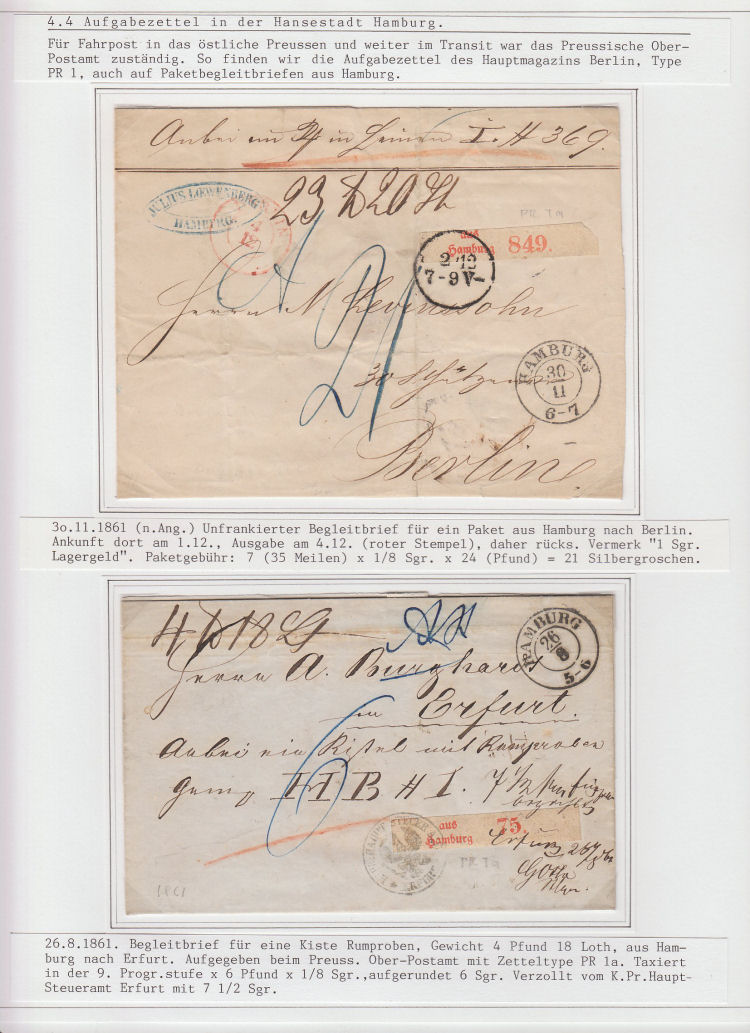 4.4 Aufgabezettel in der Hansestadt Hamburg.
Für Fahrpost in das östliche Preussen und weiter im Transit war das Preussische Ober-
Postamt zuständig. So finden wir die Aufgabezettel des Hauptmagazins Berlin, Type
PR 1, auch auf Paketbegleitbriefen aus Hamburg.
Anbei ein in Leinen I. H 369.
23 20
JULIUS LOEWENBERG
HAMBURG.
PR 1a
aus
Hamburg 849.
2/12
7-9 V-
Herrn N Levinssohn
21
30 Schützen
HAMBURG
30
11
6-7
Berlin
3o.11.1861 (n.Ang.) Unfrankierter Begleitbrief für ein Paket aus Hamburg nach Berlin.
Ankunft dort am 1.12., Ausgabe am 4.12. (roter Stempel), daher rücks. Vermerk "1 Sgr.
Lagergeld". Paketgebühr: 7 (35 Meilen) x 1/8 Sgr. x 24 (Pfund) = 21 Silbergroschen.
4 18
HAMBURG
26
8
5-6
Herrn A. Burghardt
in Erfurt.
Anbei ein Kistel mit Rumproben
HB # 1. 7 1/2
6
aus
Hamburg 75.
Erfurt
PR 1a
1861
26.8.1861. Begleitbrief für eine Kiste Rumproben, Gewicht 4 Pfund 18 Loth, aus Ham-
burg nach Erfurt. Aufgegeben beim Preuss. Ober-Postamt mit Zetteltype PR 1a. Taxiert
in der 9. Progr.stufe x 6 Pfund x 1/8 Sgr.,aufgerundet 6 Sgr. Verzollt vom K.Pr.Haupt-
Steueramt Erfurt mit 7 1/2 Sgr.